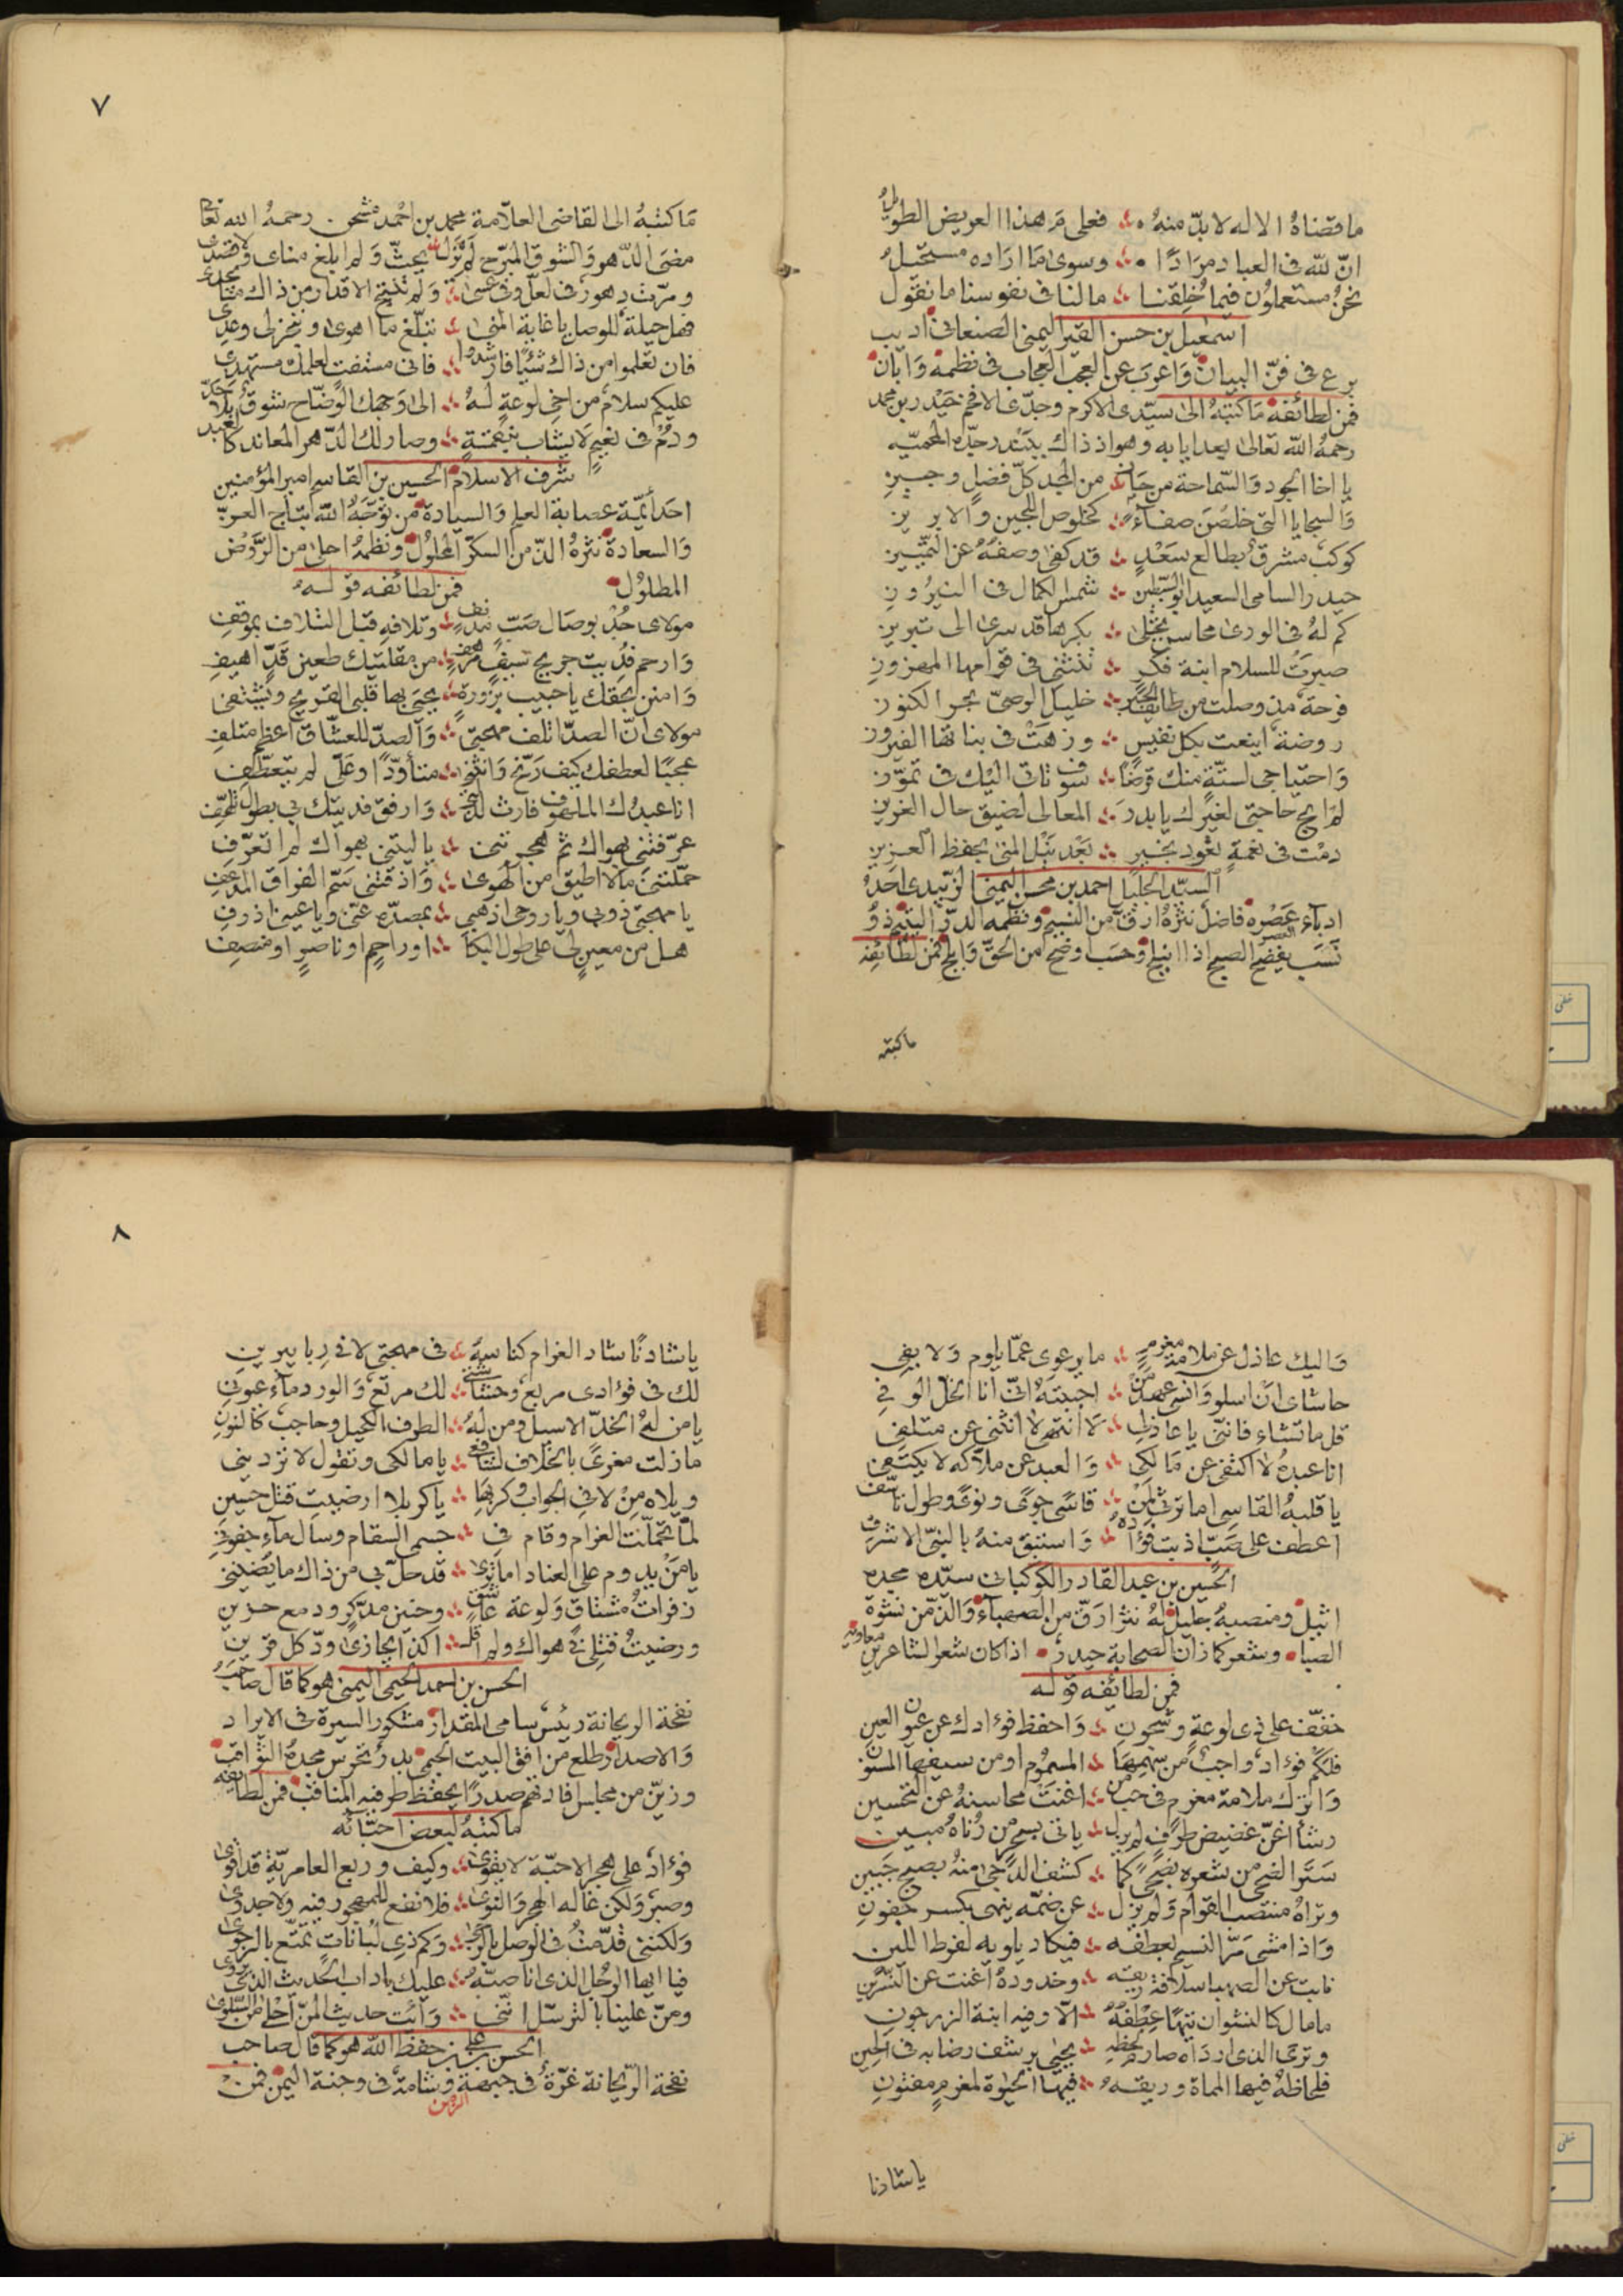 ما قضاهُ الاله لا بدّ منهُ فعلى مَ هذا العريض الطويل
انّ لله فى العباد مرَادًا وسوى مَا ارَاده مستحيل
نحنُ مستعملوُن فيما خُلِقنا ما لنا فى نفوسنا ما نقول
اسمعيل بن حسن اليمنى الصنعانى اديب
برع فى فنّ البيان وَاعرب عن العجب العجاب فى نظمه وَابان
فمن لطائفه مَا كتبهُ الى سيّدى الاكرم وجدّى الافخم حَيْدر بن محمد
رحمهُ الله تعالى بعد ايابه وهو اذ ذاك ببَنْدر جدّه المحميّه
يا اخا الجود وَالسّماحة من حَاز من المجد كلّ فضلٍ وجيزِ
وَالسجايا التى خلصْنَ صفاءً كخلوص اللجين وَالابريز
كوكبٌ مشرقٌ بطالع سَعْدٍ قد كفى وصفهُ عن التمْييز
حيدر السامى السعيد ابو السّبطين شمس الكمال فى النيرُوزِ
كم لهُ فى الورى محاسن تُجْلى بكرها قد سرى الى تبريز
صيرتُ للسلام ابنة فكرٍ تنثنى فى قوامها المهزوزِ
فرحة مذ وصلت من طائف الخير خليل الوصىّ بحر الكنوز
روضة اينعت بكل نفيسٍ وزهَتْ فى بناتها الفيروز
وَاحتياجى لستّةٍ منك قرضًا سوف تاتى اليْك فى تموّز
لمْ ابح حاجتى لغيرك يا بدرَ المعالى لضيق حال العزيز
دمْت فى نعمةٍ تعُود بخيرٍ بَعْد نيْل المنى بحفظ العزيز
السيّد الجليل احمد بن محسن اليمنى الزبيدى احَدُ
ادباء عَصْرِه فاضلٌ نثرُهُ ارقّ من النسيم ونظمه الدرّ اليتيم ذوُ
نَسَبٍ يفضح الصبح اذا انبلج وحَسَبٍ اوضح من الحقّ وَابلج فمن لطائفه
ما كتبه
٧
مَا كتبهُ الى القاضى العلاّمة محمد بن احْمد مشحم رحمهُ الله تعالى
مضى الدّهر وَالشوق المبرّح لم يزل يحثّ وَلم ابلغ مناى وَلا قصدى
ومرّت دهورٌ فى لعلّ وفى عسى وَلم تنتج الاقدار من ذاك ما يجدى
فهل حيلة للوصل يا غاية المنى تبلّغ ما اهوى وينجز لى وعدى
فان تعلموا من ذاك شيْئًا فارشدوا فانى مستفتٍ لعلمك مستهدى
عليكم سلامٌ من اخى لوعةٍ لهُ الى وَجهك الوضّاح شوقٌ بلا حَدّ
ودُمْ فى نعيمٍ لا يشاب بنقمةٍ وصار لك الدّهر المعاند كالعبد
شرف الاسلام الحسين بن القاسم امير المؤمنين
احَد أئمّة عصابة العلم وَالسيادة من توّجَهُ الله بتاج العزّ
وَالسعادة نثرهُ الذّ من السكّر المحلوُل ونظمهُ احلى من الرَّوْض
المطلوُل فمن لطائفه قولهُ
مولاى جُدْ بوصال صَبّ مدنفٍ وتلافهِ قبل التلاف بموقفِ
وَارحم فُدِيت جريح سيفٍ مرهفٍ من مقلتيك طعين قدّ اهيفِ
وَامنن بحقك يا حبيب بزورةٍ يحيَى بها قلبى القريح ويشتفى
مولاى انّ الصدّ اتلف مهجتى وَالصدّ للعشّاق اعظم متلفِ
عجبًا لعطفك كيف رَنّح وَانثنى متأوّدًا وعَلَىّ لم يتعطّفِ
انا عبدك الملهوف فارث لذلّتى وَارفق فديتك بى بطول تلهّفى
عرّفتنى بهواك ثم هجرتنى يا ليتنى بهواك لم اتعرّفِ
حمّلتنى مَا لا اطيق من الهوى وَاذقتنى سَمّ الفراق المدعفِ
يا مهجتى ذوبى ويا روحى اذهبى بصدّه عنّى ويا عينى اذرفى
هل من معينٍ لى على طول البكا اوراحمٍ او ناصرٍ او منصفِ
وَاليك عاذل عن ملامة مغرمٍ ما يرعوى عمّا يلوم وَلا يفى
حاشاى انْ اسلو وَانسى عهد مَنْ احببتهُ انّى انا الخلّ الوفى
قل ما تشاء فانّنى يا عاذلى لا انتهى لا انثنى عن متلفى
انا عبدهُ لا اكتفى عن مَالكى وَالعبد عن ملاّكه لا يكتفى
يا قلبهُ القاسى اما ترثى لمَنْ قاسَى جوىً ونوىً وطول تأسّف
اعطف على صَبّ اذبت فؤاده وَاستبق منهُ بالنبىّ الاشرفِ
الحسين بن عبد القادر الكوكبانى سيّدٌ مجده
اثيل ومنصبهُ جليل لهُ نثرٌ ارَقّ من الصهباء وَالذّ من نشوة
الصبا وشعر كما زان الصحابة حيدرٌ اذا كان شعر الشاعرين معاويه
فمن لطائفه قوله
خفّف على ذى لوعةٍ وشجون وَاحفظ فؤادك عن عيون العين
فلكم فؤادٌ واجبٌ من سهمها المسمُوم او من سيفها المسنون
وَاترك ملامة مغرمٍ فى حب من اغنتْ محاسنهُ عن التحسين
رشأ اغنّ غضيض طرفٍ لم يزل ياتى بسحرٍ من رُناهُ مبين
سَتَر الضحى من شعره بضحىً كما كشف الدّجى منهُ بصبح جَبينِ
وتراهُ منتصب القوام وَلم يزل عن ضمّه ينهى بكسر جفونِ
وَاذا مشى مَرّ النسيم بعطفه فيكاد يلويه لفرط اللين
نابت عن الصهبا سلافة ريقه وخدودهُ اغنت عن النسْرين
ما مال كالنشوان تيهًا عِطْفهُ الاّ وفيه ابنة الزرجون
وترى الذى ارداه صارم لحظِهِ يحيى برشف رضابه فى الحين
فلحاظهُ فيها المماة وريقهُ فيها الحيٰوة لمغرمٍ مفتونِ
يا شادنا
٨
يا شادنًا شاد الغرام كناسهُ فى مهجتى لا فى رِبا يبرين
لك فى فؤادى مربعٌ وحشاشتى لك مرتعٌ وَالورد ماء عيونى
يا من لهُ الخدّ الاسيل ومن لهُ الطرف الكحيل وحاجبٌ كالنونِ
ما زلت مغرىً بالخلاف لشافعى يا مالكى وتقول لا تزدينى
ويلاه مِنْ لا فى الجواب وكربها يا كربلا ارضيت قتل حسينِ
لمّا تحمّلت الغرام وقام فى جسمى السقام وسال ماء جفونى
يا مَنْ يدوم على العناد اما ترى قد حلّ بى من ذاك ما يضنينى
زفرات مشتاقٍ ولوعة عاشقٍ وحنين مدّكرٍ ودمع حزينِ
ورضيتُ قتلى فى هواك ولم اقل اكذا يجازى ودّ كل قرينِ
الحسن بن احمد الحيمى اليمنى هو كما قال صاحبُ
نفحة الريحانة رئيس سامى المقدار مشكور السيرة فى الايراد
وَالاصدار طلع من افق البيت الحيمى بدرٌ تحرس مجدهُ الثواقب
وزيّن من مجالس افادتهم صدرًا يحفظ طرفيه المناقب فمن لطائفه
ما كتبهُ لبعض احبّائه
فؤادٌ على هجر الاحبّة لا يقوى وكيف وربع العامريّة قد اقوى
وصبرٌ ولكن غاله الهجر وَالنوى فلا نفع للمهجور فيه ولا جدوى
وَلكننى قدّمتُ فى الوصل بالرجا وكم ذى لبُاناتٍ تمتّع بالرجوى
فيا ايها الوجل الذى انا صبّهُ عليك باداب الحديث الذى يروى
ومنّ علينا بالترسّل انّنى وَانت حديث المنّ احلى من السّلوى
الحسن بن على بن حفظ الله هو كما قال صاحب
نفحة الرّيحانة غرّةٌ فى جبهة وشامة فى وجنة اليَمن فمنْ
الزمن